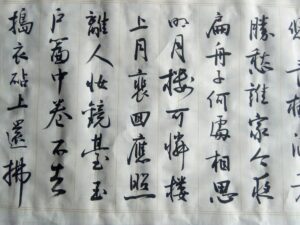 勝愁誰家今夜
扁舟子何處相思
明月樓可憐樓
上月裴回應照
離人妝鏡臺玉
戶簾中卷不去
搗衣砧上還拂